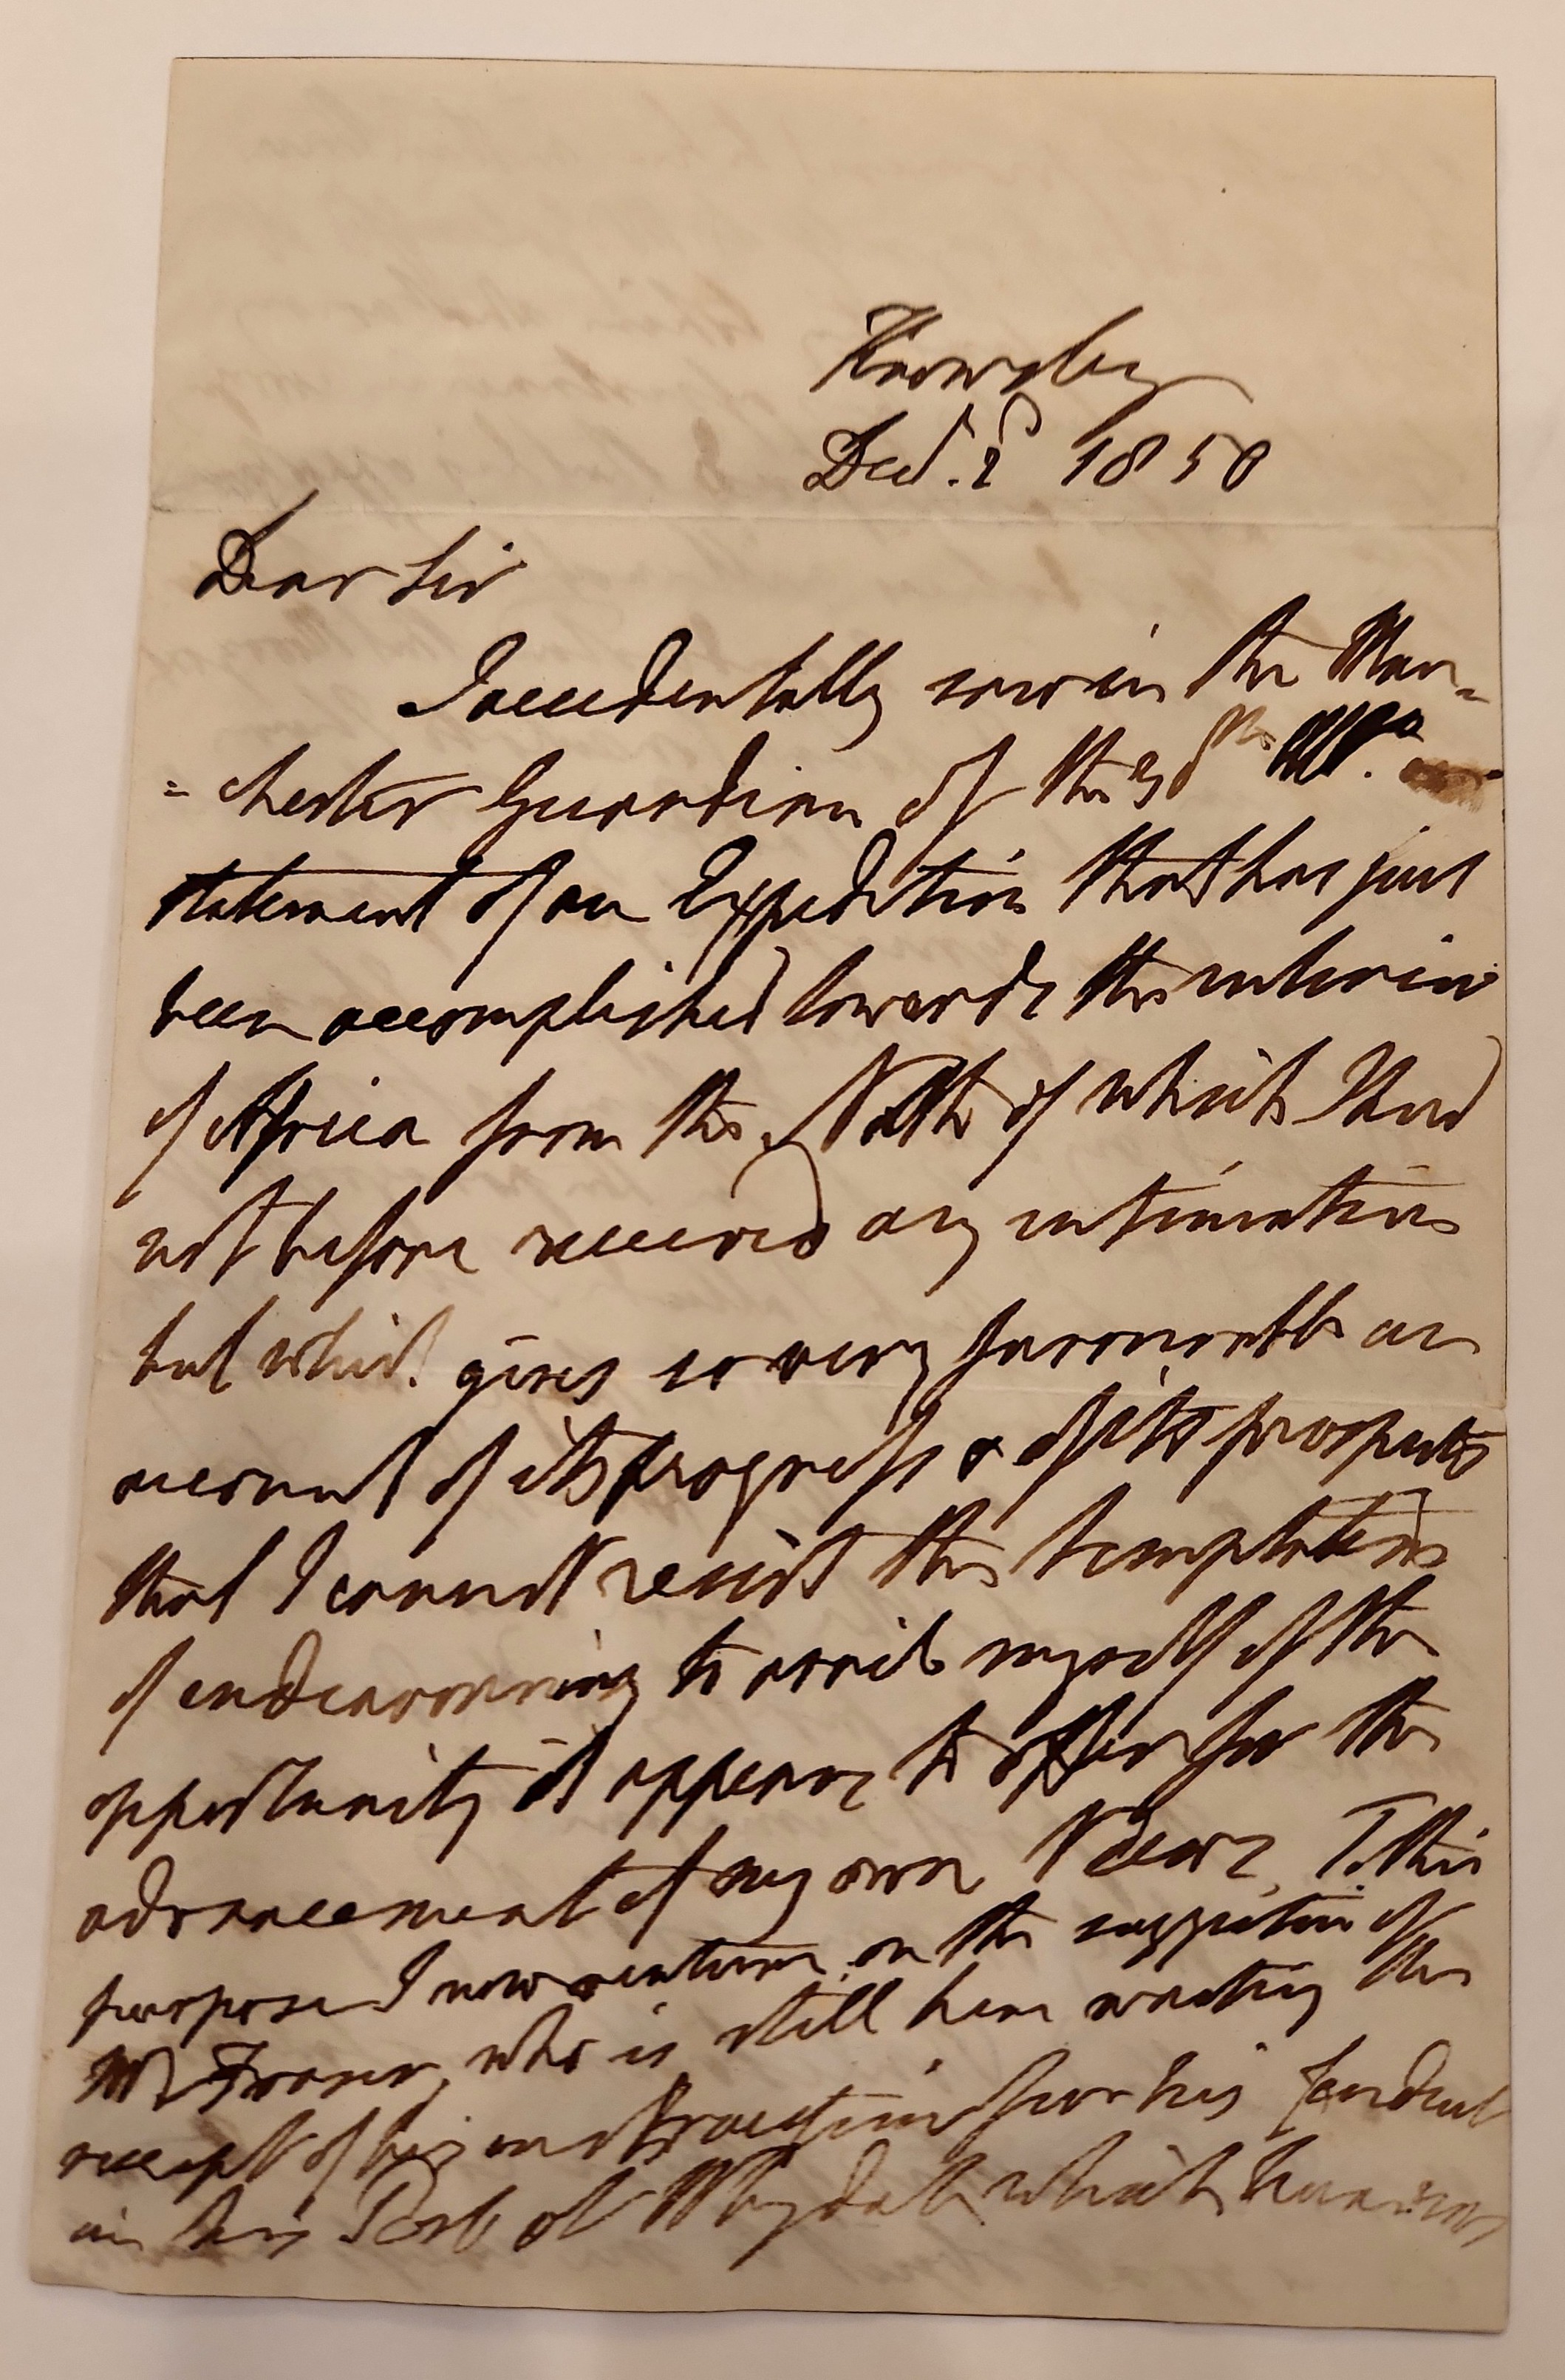 Knowsley
Decr. 2d 1850
Dear Sir
I accidentally saw in the Man-
=chester Guardian of the
statement of an Expedition that has just
been accomplished towards the interior
of Africa from the North of which I had
not before received any intimation
but which gives so very favourable an
account of its progress & of its prospects
that I cannot resist the temptation
of endeavouring to avail myself of the
opportunity it appears to offer for the
advancement of my own Views, To this
purpose I now venture on the suggestion of
Mr Fraser, who is still here waiting the
receipt of his instructions for his conduct
in his Post at Whydah which